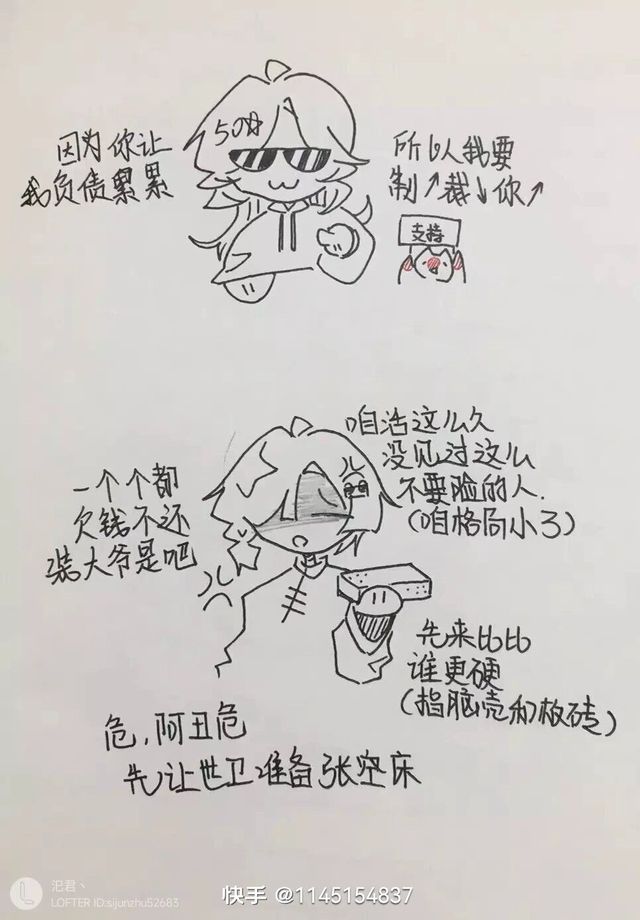 因为你让
我负债累累
50%
所以人我要
制↗裁↓你↗
支持
一个个都
欠钱不还
装大爷是吧
咱活这么久
没见过这么
不要脸的人.
(咱格局小了)
先来比比
谁更硬
(指脑壳和板砖)
危,阿丑危
先让世卫准备张空床
氾君丶
LOFTER ID:sijunzhu52683
快手 @1145154837